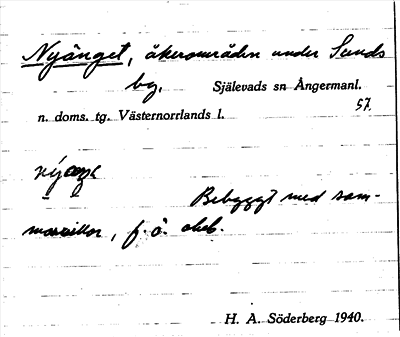 Nyänget, åkerområden under Sunds
by, Själevads sn Ångermanl.
n. doms. tg. Västernorrlands l. 57.
Bebyggt med som-
marvillor, f.ö. obeb.
H. A. Söderberg 1940.